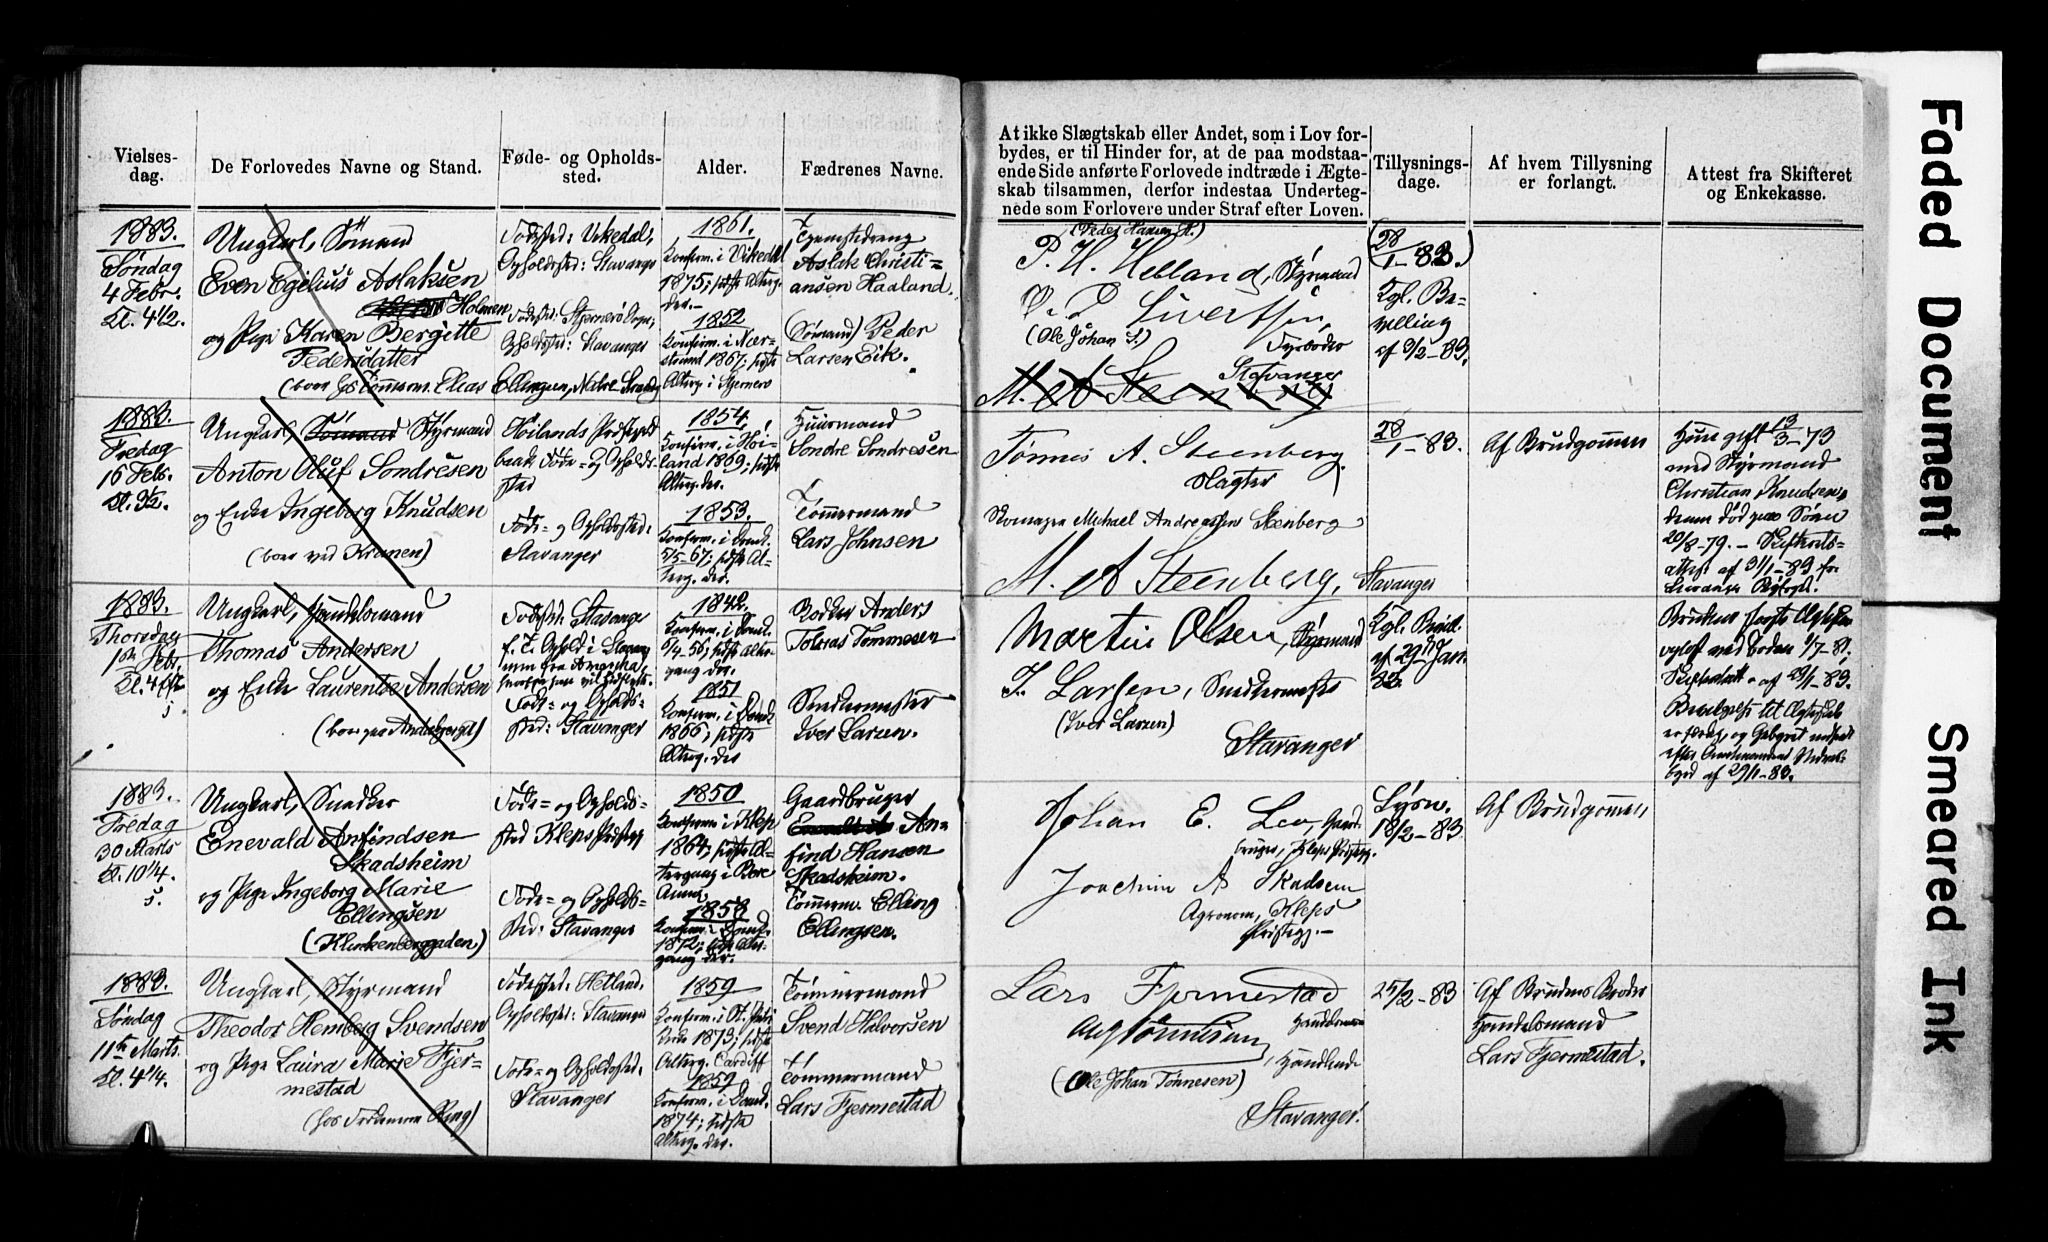 Vielses-
dag.
De Forlovedes Navne og Stand.
Føde- og Opholds-
sted.
Alder.
Fædrenes Navne.
At ikke Slægtskab eller Andet, som i Lov for-
bydes, er til Hinder for, at de paa modstaa-
ende Side anførte Forlovede indtræde i Ægte-
skab tilsammen, derfor indestaa Underteg-
nede som Forlovere under Straf efter Loven.
Tillysnings-
dage.
Af hvem Tillysning
er forlangt.
Attest fra Skifteret
og Enkekasse.
1883.
Søndag
4 Febr.
Kl. 4 1/2.
Ungkarl, Sømand
Even Egelius Aslaksen
Holmen
og Pige Karen Bergitte
Pedersdatter
(boer hos Tømmerm. Elias Ellingsen, Nedre Strandg
Fødested: Vikedal,
Opholdssted: Stavanger
Fødested: Stjernerø Sogn;
Opholdsted: Stavanger
1861.
Konfirm. i Vikedal
1875; sidste Alterg.
der.
1852
Konfirm. i Nær-
strand 1867; sidste
Alterg i Stjernerø
Tjenestedreng
Aslak Christi-
ansen Haaland.
(Sømand) Peder
Larsen Eik.
(Peder Hansen H.)
P. H. Helland, Styrmand
O. J. Sivertsen,
(Ole Johan S.)
Fyrbøder
Stavanger
M. A Steenberg
(28/1-83.)
Kgl. Be-
villing
af 3/2-83.
1883.
Fredag
16 Feb.
Kl. 3 1/2.
Ungkarl, Sømand Styrmand
Anton Oluf Sondresen
og Enke Ingeborg Knudsen
(boer ved Kranen)
Høilands Præstegjeld
baade Føde- og Opholds-
sted
Føde- og Opholdssted:
Stavanger
1854.
Konfirm. i Høi-
land 1869; sidste
Alterg. der.
1853.
Konfirm. i Domk.
5/5-67; sidste Al-
terg. der.
Huusmand
Sondre Sondresen
Tømmermand
Lars Johnsen
Tønnes A. Steenberg.
Slagter
Skomager Michael Andreassen Steenberg
M. A Steenberg, Stavanger
28/1-83.
Af Brudgommen
Hun gift 13/3-73
med Styrmand
Christian Knudsen,
denne død paa Søen
20/8-79. - Skifterets-
attest af 31/1-83 fra
Stavanger Byfoged.
1883.
Thorsdag
1ste Febr.
Kl. 4 Eft.
5
Ungkarl, Handelsmand
Thomas Andersen
og Enke Laurentse Andersen
(boer paa Andasberget)
Fødested: Stavanger
f. T. Ophold i Stavanger
Føde- og Opholds-
sted: Stavanger
1842.
Konfirm. i Domk.
6/4-56; sidste Alter-
gang der.
1851
Konfirm. i Domk.
1866; sidste
Alterg. der
Bødker Anders
Tobias Tommesen
Snedkermester
Iver Larsen.
Martin Olsen, Styrmand
I. Larsen, Snedkermester
(Iver Larsen)
Stavanger
Kgl. Bevil.
af 29de Jan.
83.
Brudens første Ægteskab
opløst ved Døden 6/7-81,
Skifteratt. af 29/1-83.
1883.
Fredag
30 Marts
Kl. 10 1/4.
5.
Ungkarl, Snedker
Enevald Anfindsen
Skadsheim
og Pige Ingeborg Marie
Ellingsen
(Klinkenberggaden)
Føde- og Opholds-
sted Kleps Præstegj
Føde- og Opholds-
sted: Stavanger
1850
Konfirm. i Klep
1864; sidste Al-
tergang i Bore
Anna
1858
Konfirm. i Domk.
1872; sidste Alter-
gang der.
Gaardbruger
An-
find Hansen
Skadsheim.
Tømmerm. Elling
Ellingsen.
Johan E. Lea, Gaard-
bruger, Kleps Præstegj.
Joachim A Skadsem
Agronom, Kleps
Præstegj.-
Lysn.
18/2-83.
Af Brudgommen,
1883.
Søndag
11te Marts.
Kl. 4 1/4.
Ungkarl, Styrmand
Theodor Hemberg Svendsen
og Pige Laura Marie Fjer-
mestad
(hos Fodermann Ring)
Fødested: Hetland.
Opholdsted: Stavanger
Føde- og Opholdssted.
Stavanger
1859
Konfirm. i St. Petri
Kirke 1873; sidste
Alterg. Cardiff
1859
Konfirm. i Domk.
1874; sidste
Alterg. der.
Tømmermand
Svend Halvorsen
Tømmermand
Lars Fjermestad
Lars Fjermestad
Handelsmand
O. J. Tönnesen, Handlende
(Ole Johan Tønnesen)
Stavanger.
25/2-83
Af Brudens Broder
Handelsmand
Lars Fjermestad.
Faded Document
Smeared Ink